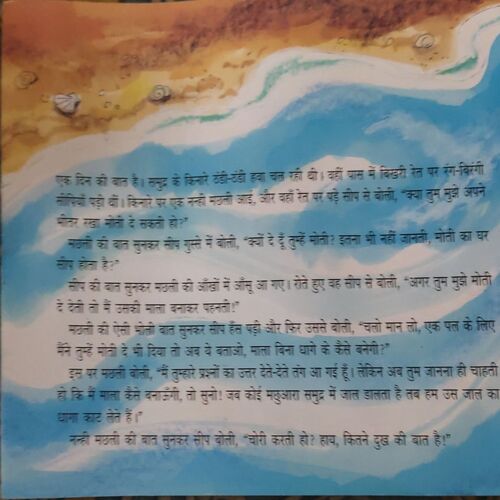 एक दिन की बात है। समुद्र के किनारे ठंडी-ठंडी हवा चल रही थी। वहीं पास में बिखरी रेत पर रंग-बिरंगी
सीपियाँ पड़ी थीं। किनारे पर एक नन्ही मछली आई, और वहाँ रेत पर पड़े सीप से बोली, “क्या तुम मुझे अपने
भीतर रखा मोती दे सकती हो?”
मछली की बात सुनकर सीप गुस्से में बोली, “क्यों दे दूँ तुम्हें मोती? इतना भी नहीं जानती, मोती का घर
सीप होता है?”
सीप की बात सुनकर मछली की आँखों में आँसू आ गए। रोते हुए वह सीप से बोली, “अगर तुम मुझे मोती
दे देती तो मैं उसकी माला बनाकर पहनती!”
मछली की ऐसी भोली बात सुनकर सीप हँस पड़ी और फिर उससे बोली, “चलो मान लो, एक पल के लिए
मैंने तुम्हें मोती दे भी दिया तो अब ये बताओ, माला बिना धागे के कैसे बनेगी?”
इस पर मछली बोली, “मैं तुम्हारे प्रश्नों का उत्तर देते-देते तंग आ गई हूँ। लेकिन अब तुम जानना ही चाहती
हो कि मैं माला कैसे बनाऊँगी, तो सुनो! जब कोई मछुआरा समुद्र में जाल डालता है तब हम उस जाल का
धागा काट लेते हैं।”
नन्ही मछली की बात सुनकर सीप बोली, “चोरी करती हो? हाय, कितने दुख की बात है!”